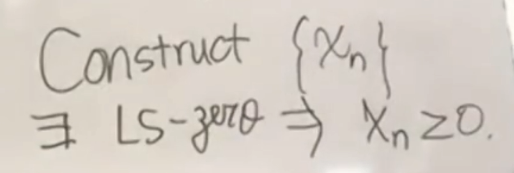 Construct {Xn}
∃ LS-zero ⇒ Xn ≥ 0.